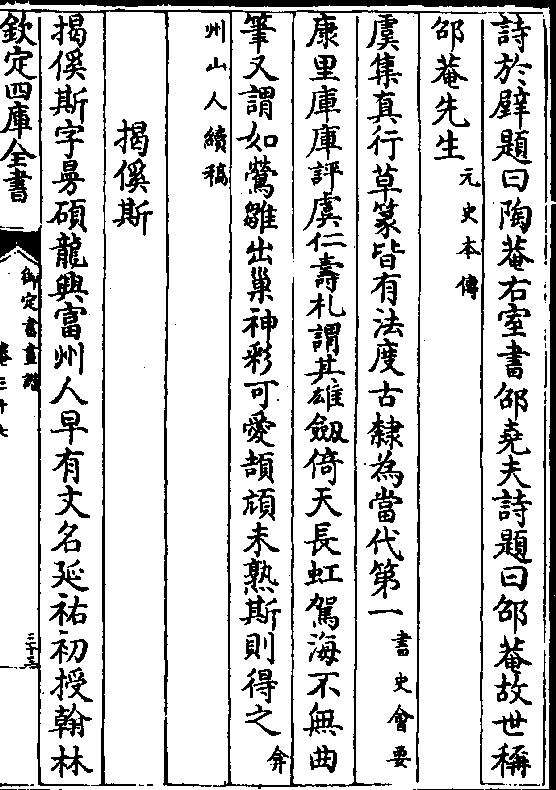 詩於壁題曰陶菴右室書邵堯夫詩題曰邵菴故世稱
邵菴先生元史本傳
虞集真行草篆皆有法度古隸為當代第一書史會要
康里庫庫評虞仁壽札謂其雄劔倚天長虹駕海不無曲
筆又謂如鶯雛出巢神彩可愛頡頏未熟斯則得之弇
州山人續稿
揭傒斯
揭傒斯字曼碩龍興富州人早有文名延祐初授翰林
欽定四庫全書
御定書畫譜
卷三十七
三十三